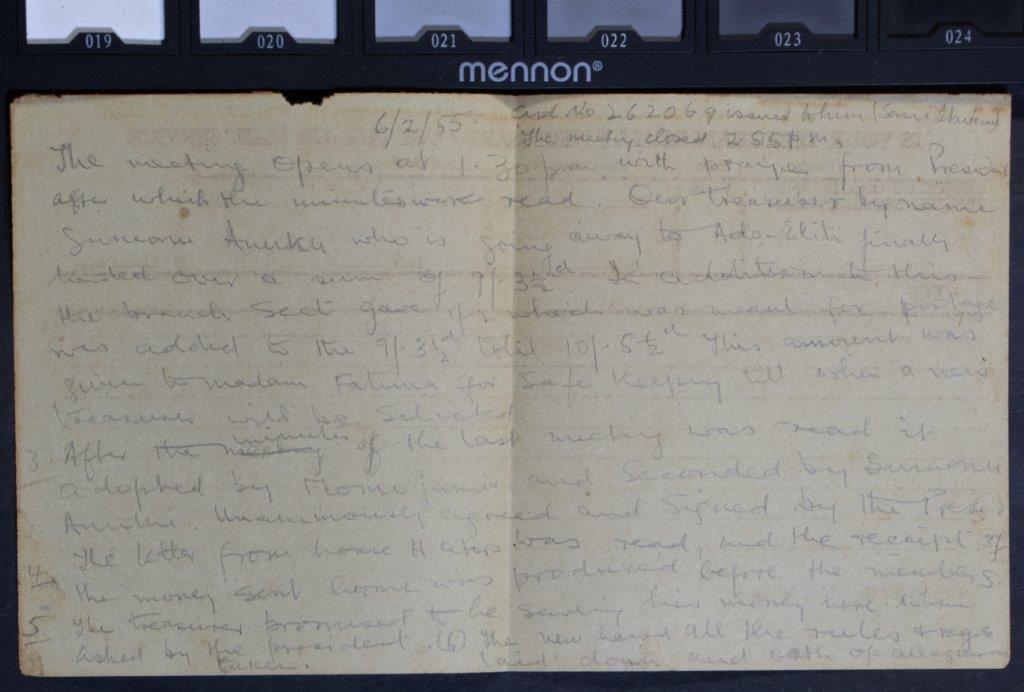 019 020 021 022 023 024
mennon®
6/2/55
Card No 262069 issued to him
The meeting closed 2.55 p.m.
The meeting opens at 1.30 pm with prayer from President
after which the minutes were read. Our treasurer by name
Sumonu Anuku who is going away to Ado-Ekiti finally
handed over a sum of 9/-3½d. In addition to this
the branch Sect gave 1/2 which was meant for postage
was added to the 9/-3½d total 10/-5½d This amount was
given to madam Fatuma for Safe Keeping till when a new
treasurer will be Selected.
3 After the meeting minutes of the last meeting was read it
adopted by Momo junior and Seconded by Sumonu
Anuku. Unanimously agreed and Signed by the Presid
4 The letter from home was read, and the receipt of
the money Sent home was produced before the members.
5 The treasurer promised to be Sending his money here when
asked by the president. (6) The new heard all the rules & regs
taken. laid down and oath of allegiance